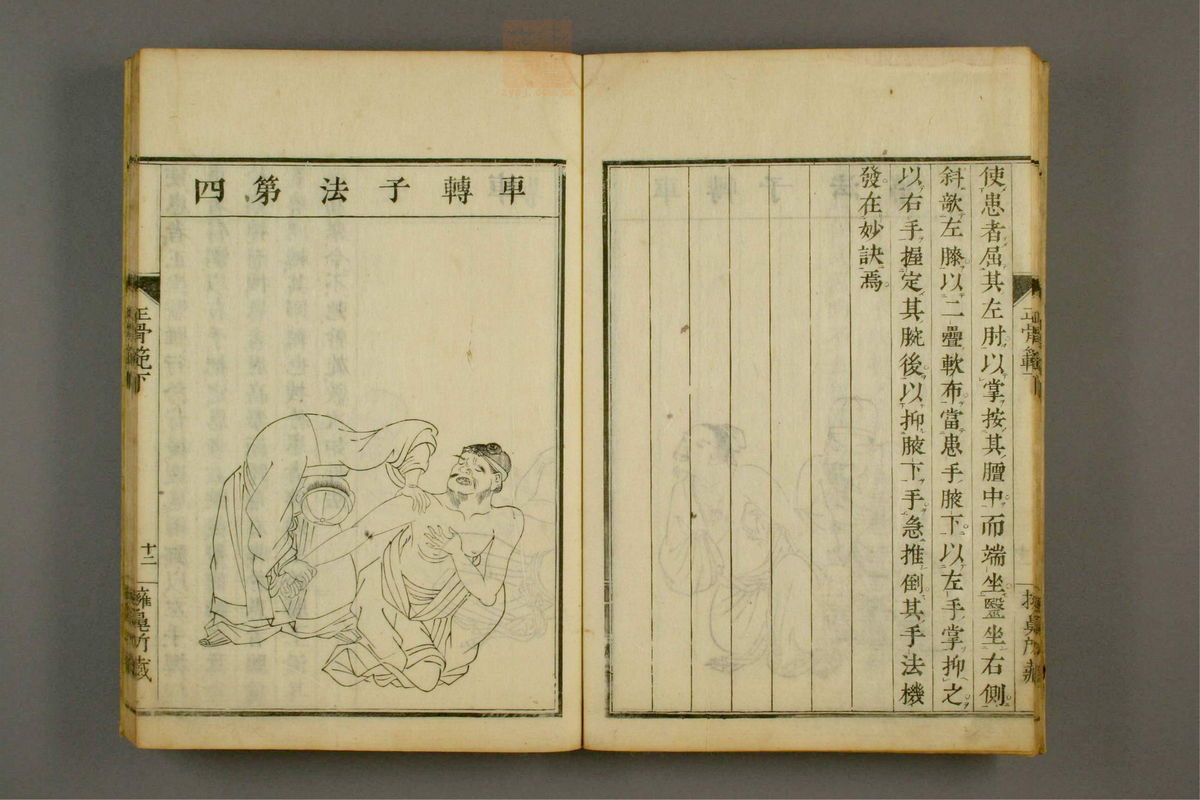 使患者屈其左肘以掌按其膻中而端坐醫坐右側
斜欹左膝以二疊軟布當患手腋下以左手掌抑之
以右手握定其腕後以抑腋下手急推倒其手法機
發在妙訣焉
車轉子法第四
正骨範下
十二